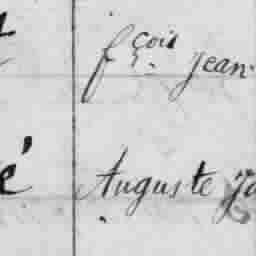 fçois Jean
é Auguste